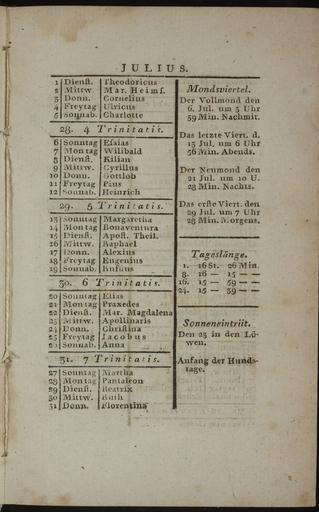 JULIUS.
1 Dienst. Theodoricus
2 Mittw. Mar. Heims.
3 Donn. Cornelius
4 Freytag Ulricus
5 Sonnab. Charlotte
28. 4 Trinitatis.
6 Sonntag Esaias
7 Montag Wilibald
8 Dienst. Kilian
9 Mittw. Cyrillus
10 Donn. Gottlob
11 Freytag Pius
12 Sonnab. Heinrich
29. 5 Trinitatis.
13 Sonntag Margaretha
14 Montag Bonaventura
15 Dienst. Apost. Theil.
16 Mittw. Raphael
17 Donn. Alexius
18 Freytag Eugenius
19 Sonnab. Rufinus
30. 6 Trinitatis.
20 Sonntag Elias
21 Montag Praxedes
22 Dienst. Mar. Magdalena
23 Mittw. Apollinaris
24 Donn. Christina
25 Freytag Jacobus
26 Sonnab. Anna
31. 7 Trinitatis.
27 Sonntag Martha
28 Montag Pantaleon
29 Dienst. Beatrix
30 Mittw. Ruth
31 Donn. Florentina
Mondsviertel.
Der Vollmond den
6. Jul. um 5 Uhr
59 Min. Nachmit.
Das letzte Viert. d.
13 Jul. um 6 Uhr
56 Min. Abends.
Der Neumond den
21 Jul. um 10 U.
28 Min. Nachts.
Das erste Viert. den
29 Jul. um 7 Uhr
28 Min. Morgens.
Tageslänge.
1. 16 St. 26 Min.
8. 16 — 15 — —
16. 15 — 59 — —
24. 15 — 39 — —
Sonneneintritt.
Den 23 in den Lö-
wen.
Anfang der Hunds-
tage.